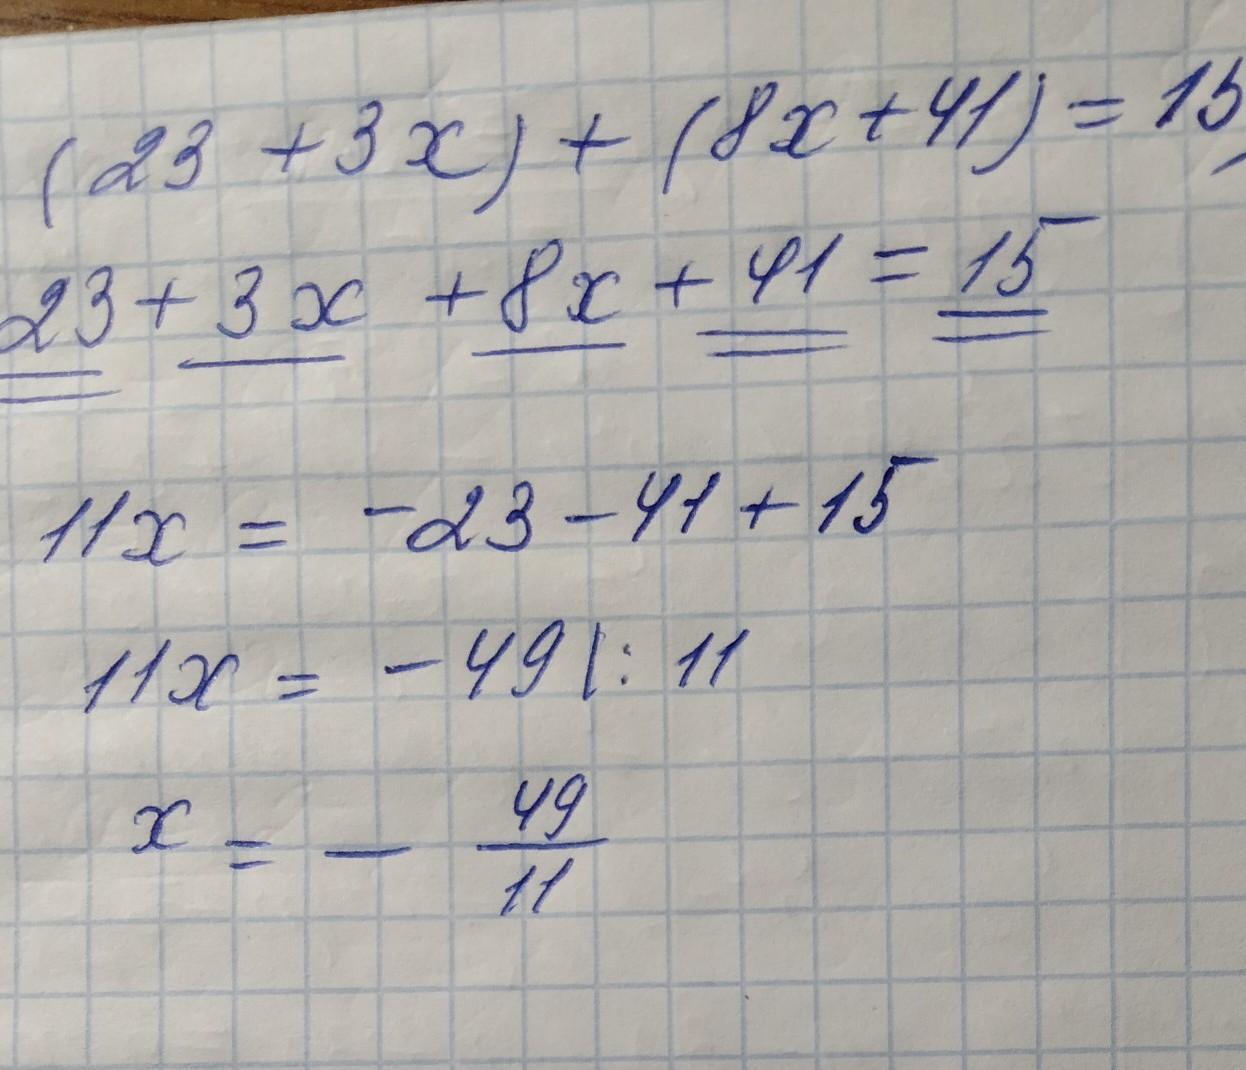 (23 + 3x) + (8x + 41) = 15
23 + 3x + 8x + 41 = 15
11x = -23 - 41 + 15
11x = -49 |: 11
x = - 49/11